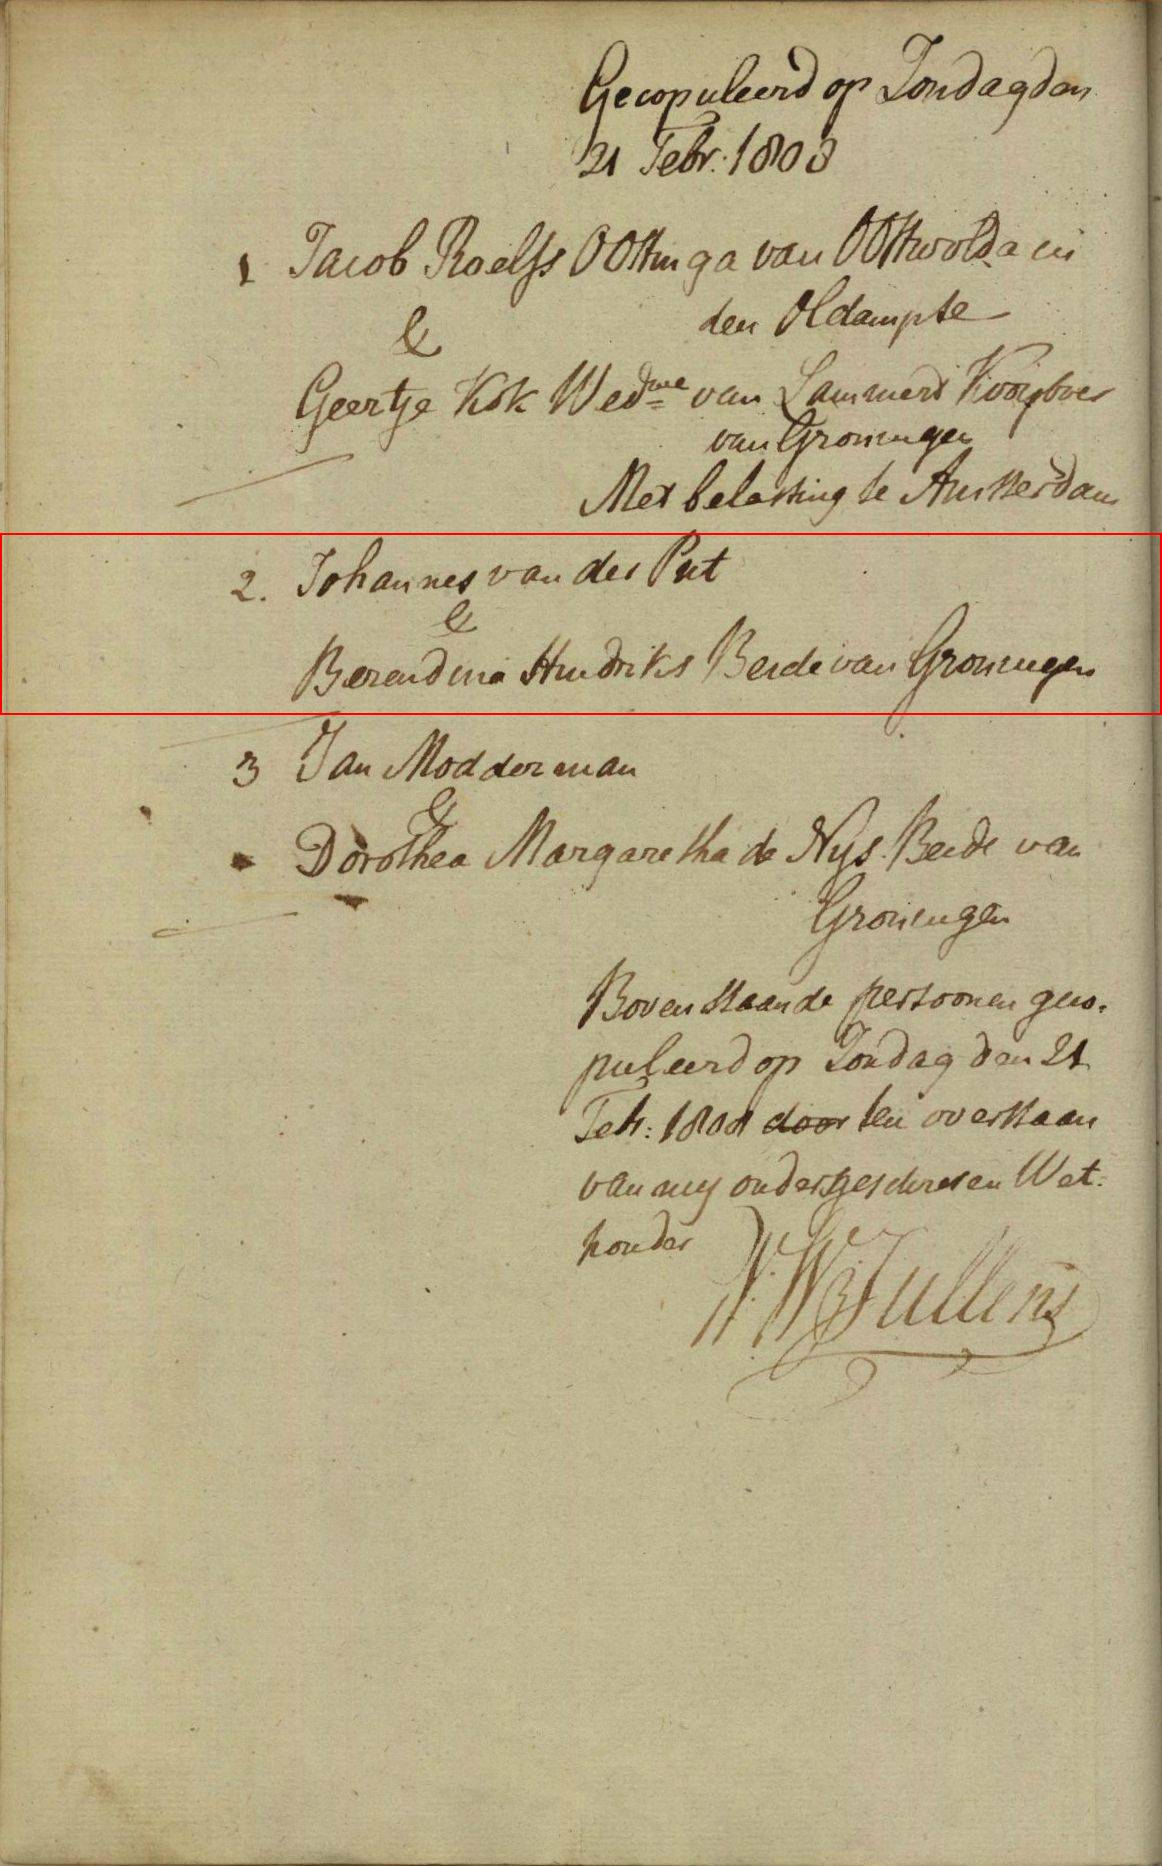 Gecopuleerd op Zondag den
21 Febr: 1808
1 Jacob Roelfs OOstinga van OOstwolda in
den Oldampte
&
Geertje Kok Wed.we van Lammert
van Groningen
Met belasting te Amsterdam
2. Johannes van der Put
&
Berendina Hindriks Beide van Groningen
3 Jan Modderman
&
Dorothea Margaretha de Nijs Beide van
Groningen
Bovenstaande persoonen geco-
puleerd op Zondag den 21
Febr: 1808 door ten overstaan
van mij ondergeschreven Wet-
houder
Jullens